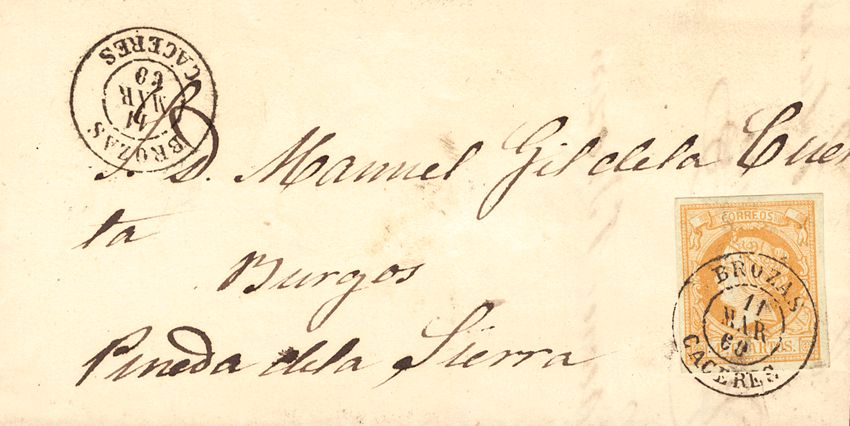 BROZAS
11
MAR
60
CACERES
S. D. Manuel Gil de la Cue
ta
Burgos
Pineda de la Sierra
CORREOS
BROZAS
11
MAR
60
CACERES